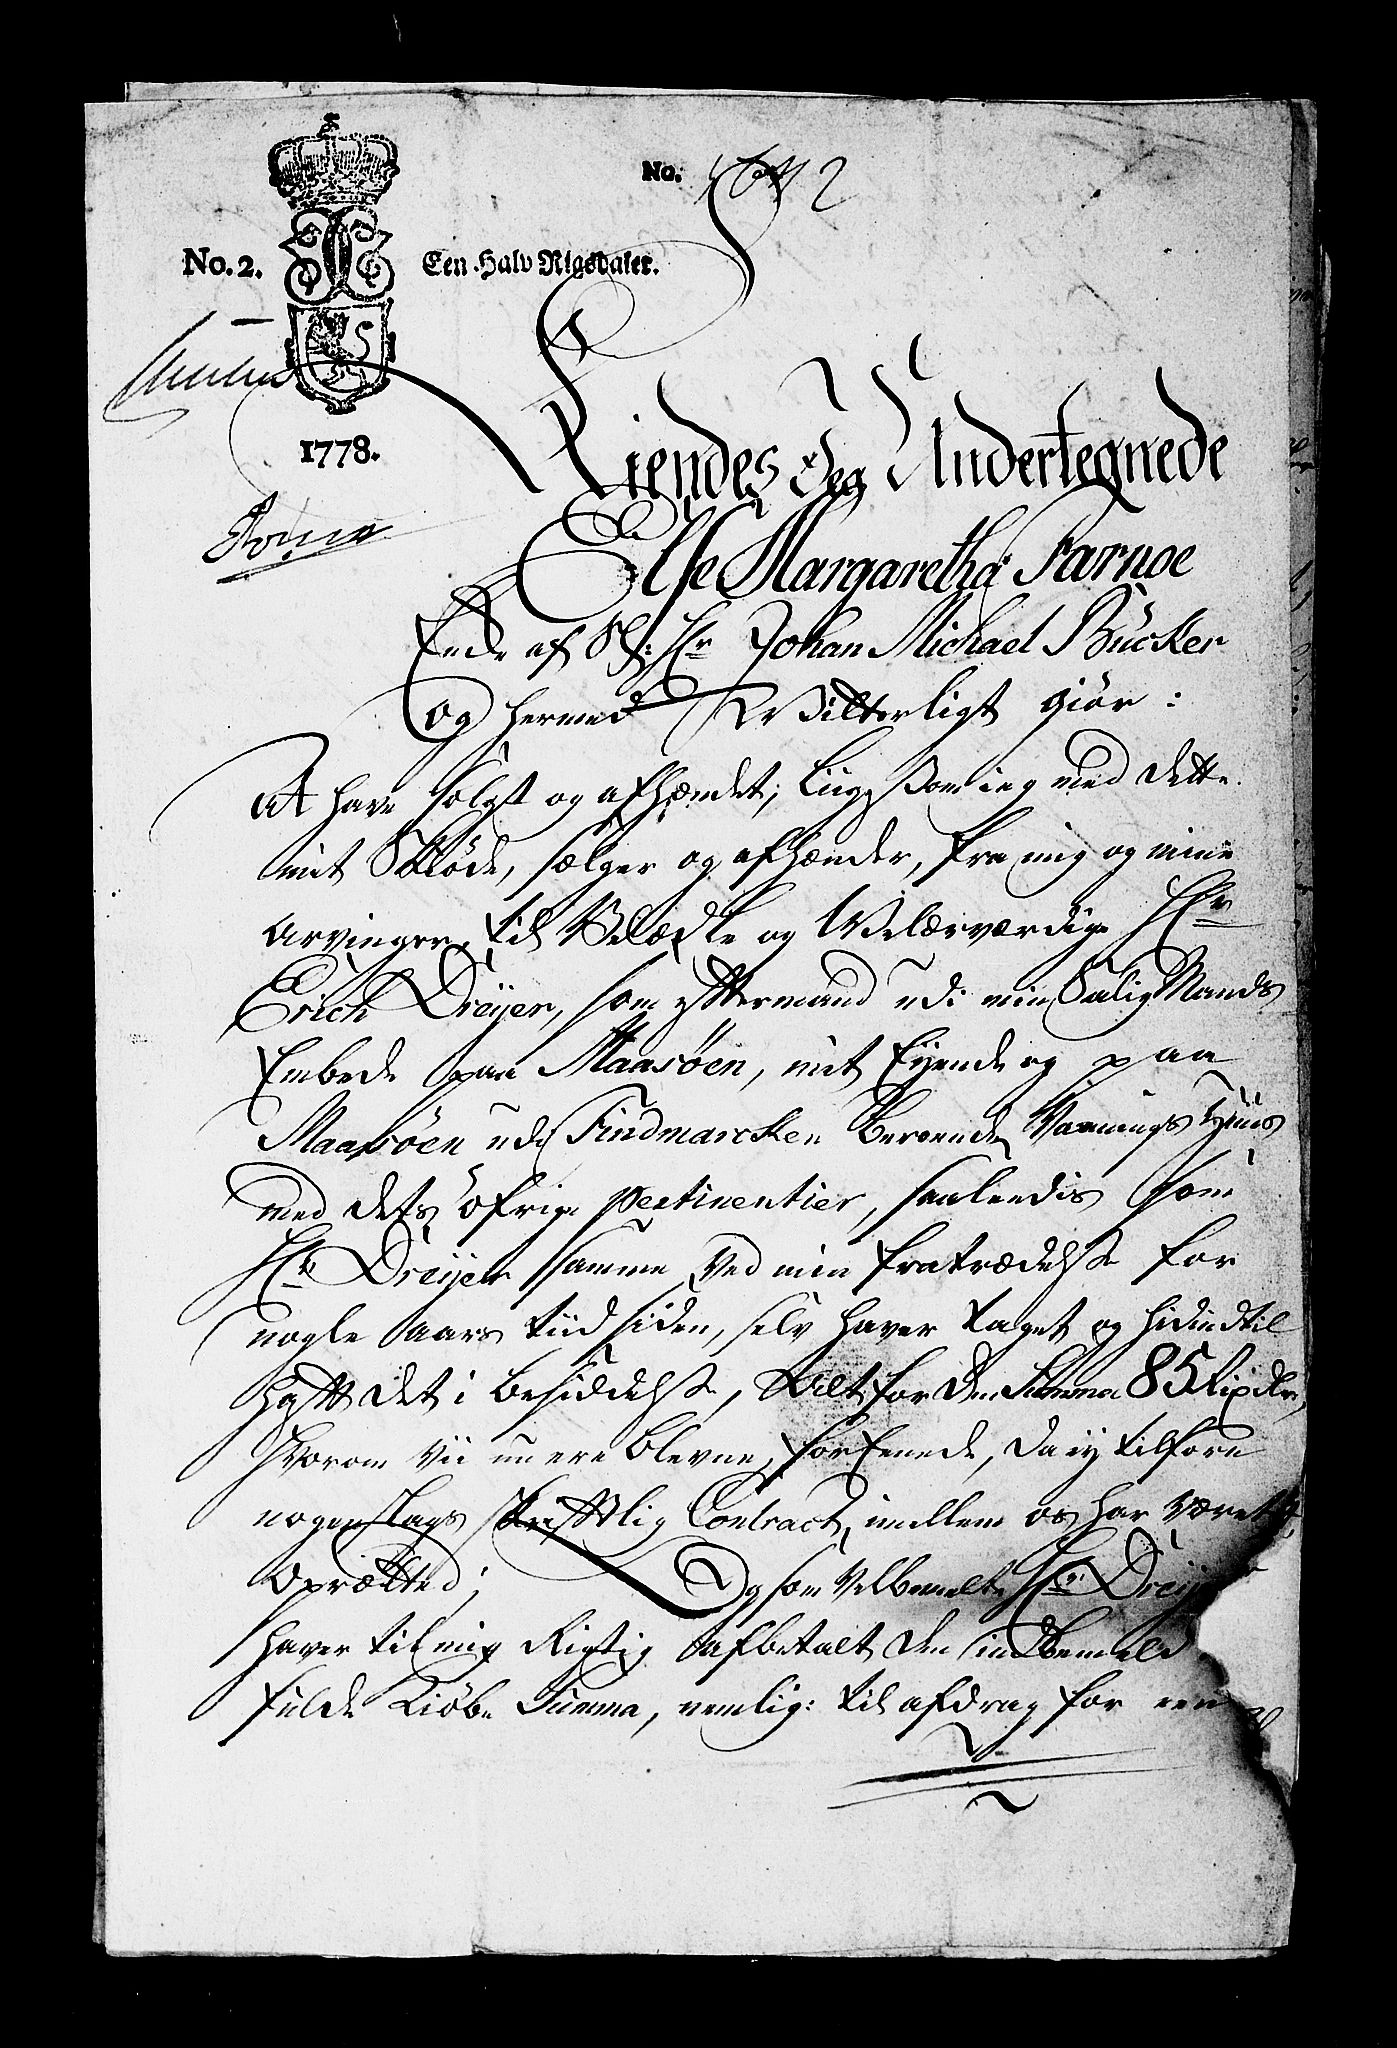 No. 2
No. 2. Een Halv Rigsdaler.
1778.
Kiendes Jeg Undertegnede
Else Margaretha Farnoe
Encke af Sl: Hr Johan Michael Bücker
og hermed Witterligt giör:
At have solgt og afhændet, liigesom ieg med dette
mit Skiöde, sælger og afhænder, fra mig og mine
Arvinger, til Velædle og Velærværdige Hr
Erich Dreyer, som Eftermand udi min Salig Mands
Embede paa Maasöen, mit Eyende og paa
Maasöen udi Findmarcken beroende Vaanings Huus
med dets öfrige Pertinentier, saaledis som
Hr Dreyer samme ved min fratrædelse for
nogle aars tiid siden, selv haver taget og hidindtil
haft det i besiddelse, Alt for den Summa 85 Rixdlr,
Hvorom vii nu ere blevne forEenede, da ey tilforn
nogen slags skriftlig Contract imellem os har været
oprættet; Og som Velbemelte Hr Dreyer
haver til mig Rigtig afbetalt den indbemelte
fulde Kiöbe Summa, nemlig: til afdrag for een